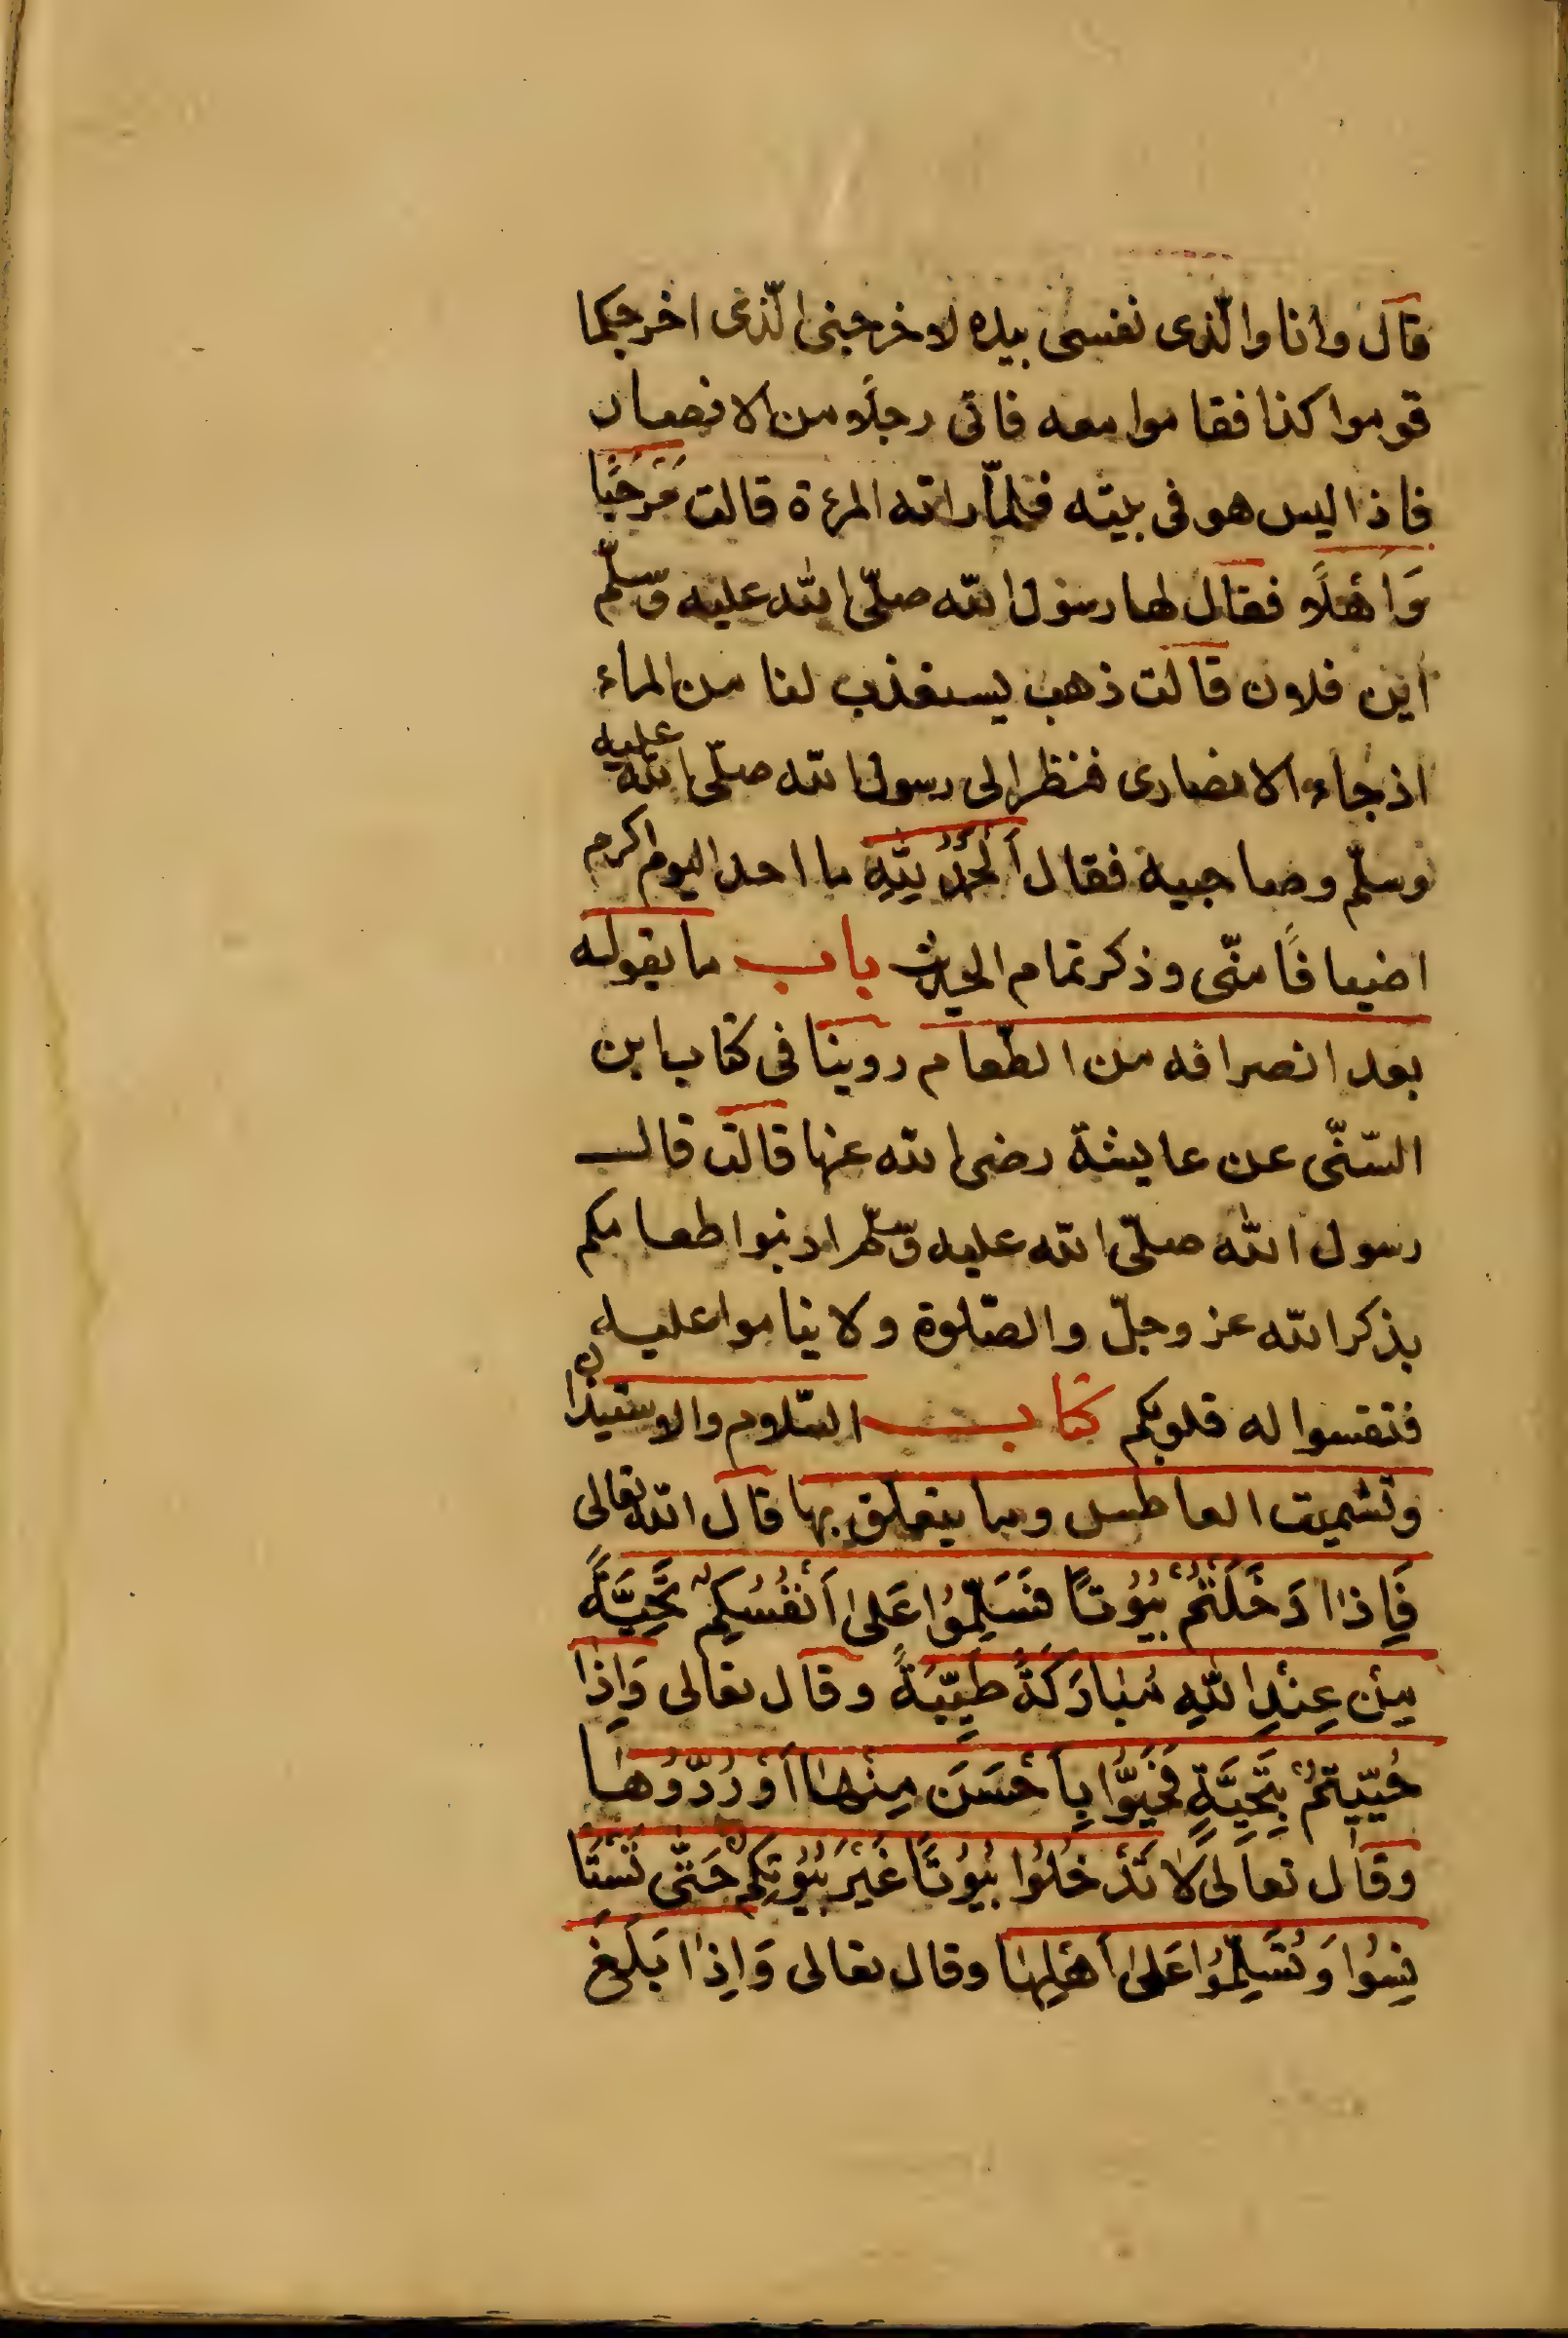 قال وانا والّذى نفسى بيده لاخرجنى الّذى اخرجكما
قوموا كذا فقاموا معه فاتى رجلًا من الانصار
فاذا ليس هو فى بيته فلمّا راته المرءة قالت مَرْحَبًا
وَأَهْلًا فقال لها رسول الله صلّى الله عليه وسلّم
اين فلان قالت ذهب يستعذب لنا من الماء
اذ جاء الانصارى فنظر الى رسول الله صلّى الله عليه
وسلّم وصاحبيه فقال اَلْحَمْدُ لِلّٰهِ ما احد اليوم اكرم
اضيافًا منّى وذكر تمام الحديث باب ما يقوله
بعد انصرافه من الطّعام روينا فى كتاب ابن
السّنّى عن عايشة رضى الله عنها قالت قال
رسول الله صلّى الله عليه وسلّم اذيبوا طعامكم
بذكر الله عز وجلّ والصّلوة ولا يناموا عليه
فتقسوا له قلوبكم كتاب السّلام والاستيذان
وتشميت العاطس وما يتعلق بها قال الله تعالى
فَاِذا دَخَلْتُمْ بُيُوتاً فَسَلِّمُوا عَلىٰ اَنْفُسُكِمْ تَحِيَّةً
مِنْ عِنْدِ اللّٰهِ مُبٰارَكَةً طَيِّبَةً وقال تعالى وَاِذٰا
حُيّيتمُْ بِتَحِيَّةٍ فَحَيُّوا بِاَحْسَنَ مِنْهٰا اَوْ رُدّوُهٰا
وقال تعالى لاٰ تَدْخُلُوا بُيُوتًا غَيْرَ بُيُوتِكُمْ حَتّى تَسْتَأْ
نِسُوا وَتُسَلِّمُوا عَلىٰ اَهْلِهٰا وقال تعالى وَاِذٰا بَلَغَ